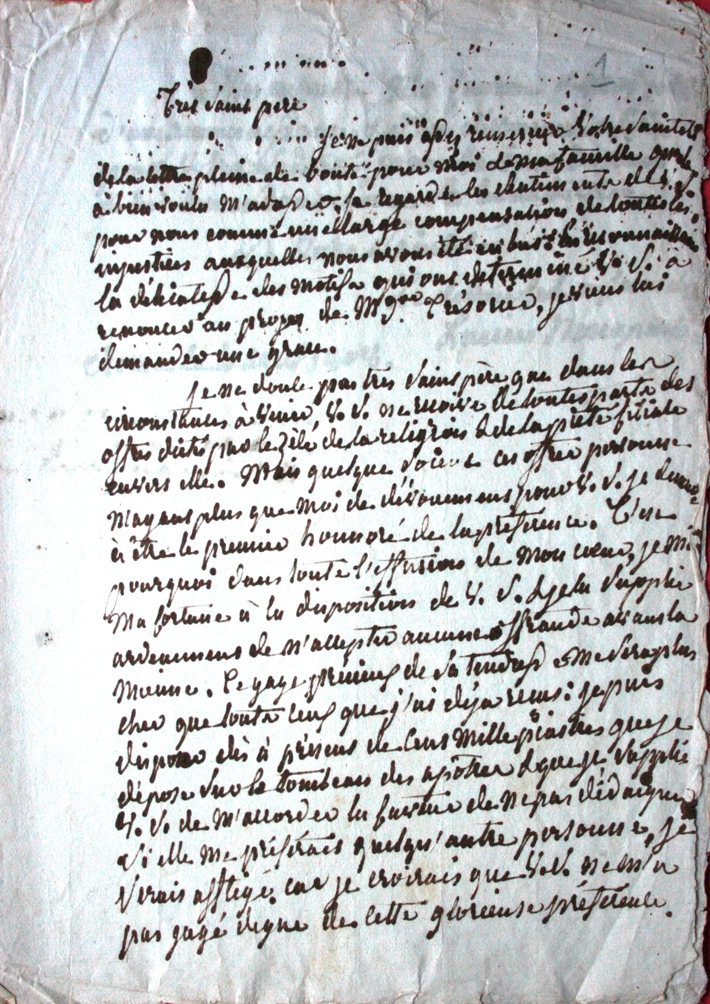 1
Très saint pere
Je ne puis assez remercier Votre Sainteté
de la lettre pleine de bonté pour moi & ma famille qu'elle
a bien voulu m'adresser. Je regarde les sentiments de V. S.
pour nous comme une large compensation de toutes les
injustices auxquelles nous avons été en but: En reconnaissant
la délicatesse des motifs qui ont determiné V. S. à
renoncer au projet de Mgr Trésorier, je veux lui
demander une grace.
Je ne doute pas très saint père que dans les
circonstances à venir V. S. ne recoive de toutes parts des
offres dictés par le zèle de la religion & de la piété filiale
envers elle. Mais quelque soient ces offres personne
n'ayant plus que moi de dévouement pour V. S. je demande
à être le premier honnoré de la préférence. C'est
pourquoi dans toute l'effusion de mon cœur, je mets
ma fortune à la disposition de V. S. & je la supplie
ardemment de n'accepter aucune offrande avant la
mienne. Ce gage précieux de sa tendresse me sera plus
cher que touts ceux que j'ai déja recus: je puis
disposer dès à présent de cent mille piastres que je
dépose sur le tombeau des apôtres & que je supplie
V. S. de m'accorder la faveur de ne pas dédaigner
si elle me préférait quelqu'autre personne, je
serais affligé. car je croirais que V. S. ne m'a
pas jugé digne de cette glorieuse préférence.